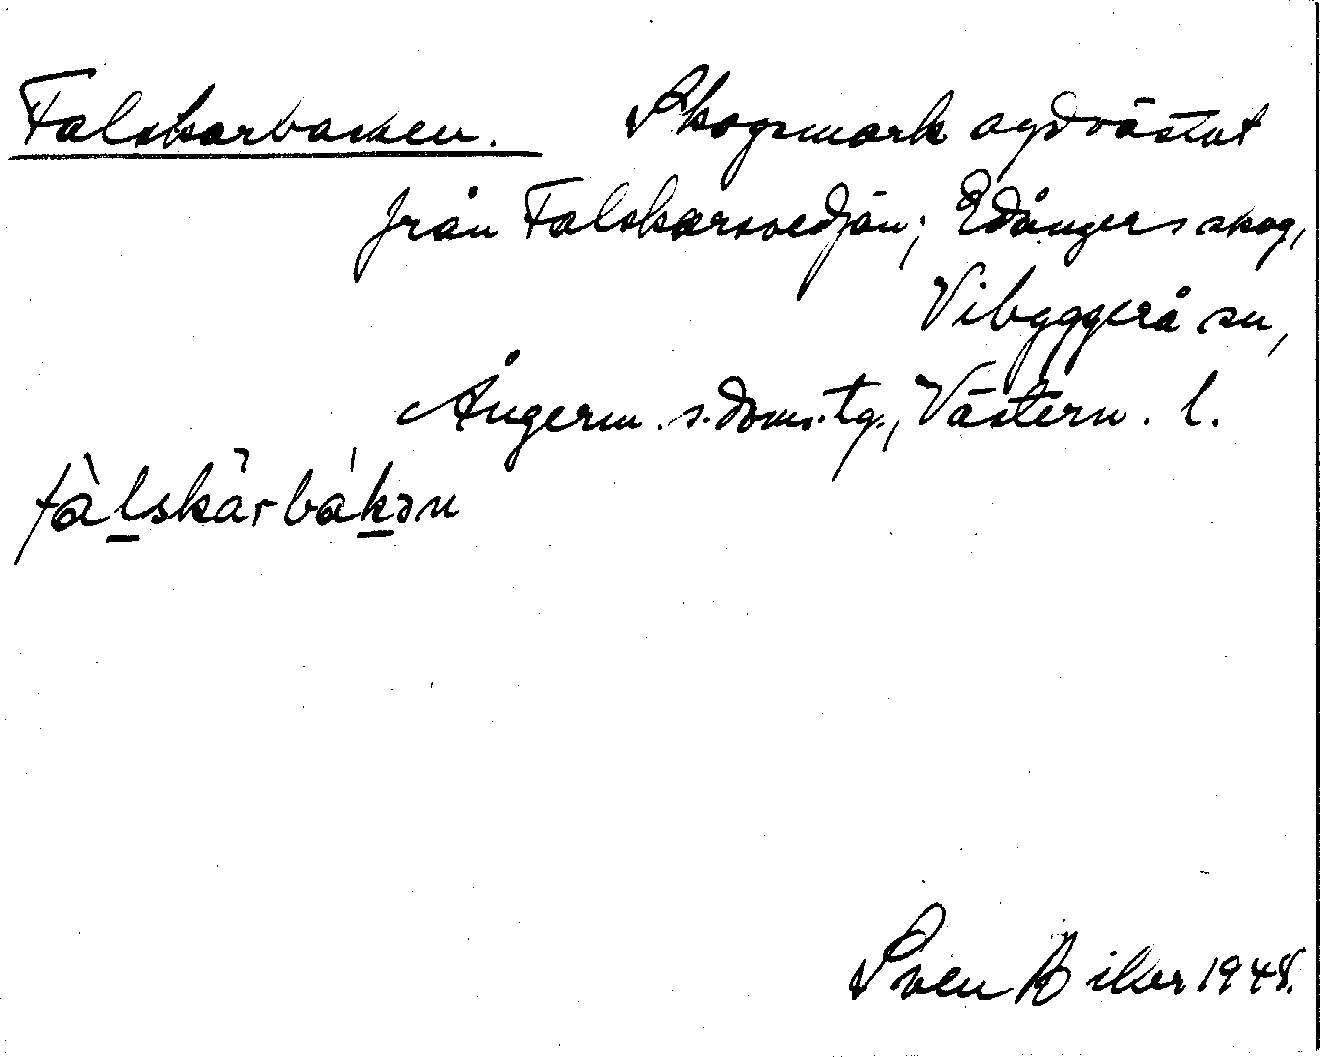 Falskarbacken. Skogsmark sydvästut
från Falskarsvedjan; Edångers skog,
Vibyggerå sn,
Ångerm. s. doms. tg., Västern. l.
fàlskā̀rbákən
Sven Biller 1948.